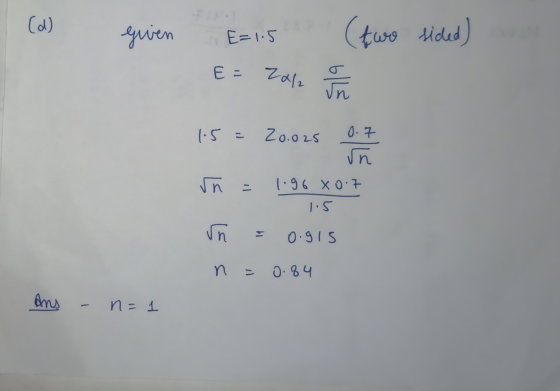 (d) given E=1.5 (two sided)
E = Zα/2 σ/√n
1.5 = Z0.025 0.7/√n
√n = 1.96 × 0.7/1.5
√n = 0.915
n = 0.84
Ans - n = 1